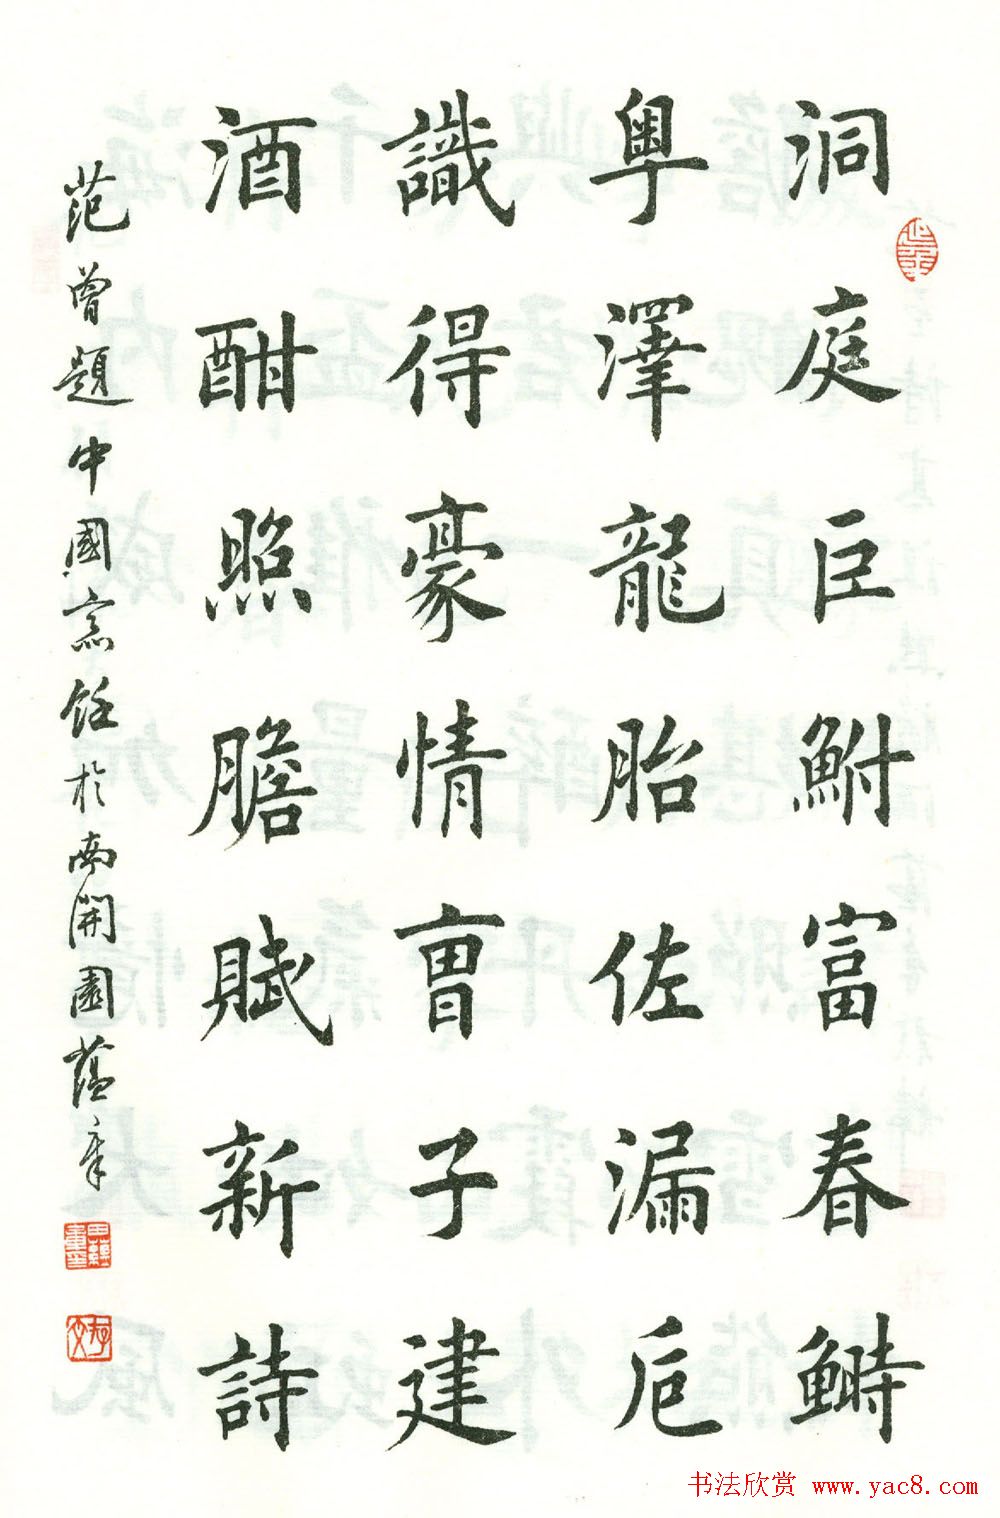 洞庭巨鮒富春鰣
粵澤龍胎佐漏卮
識得豪情曹子建
酒酣照膽賦新詩
范曾題中國烹飪於南開園蘊章
书法欣赏 www.yac8.com